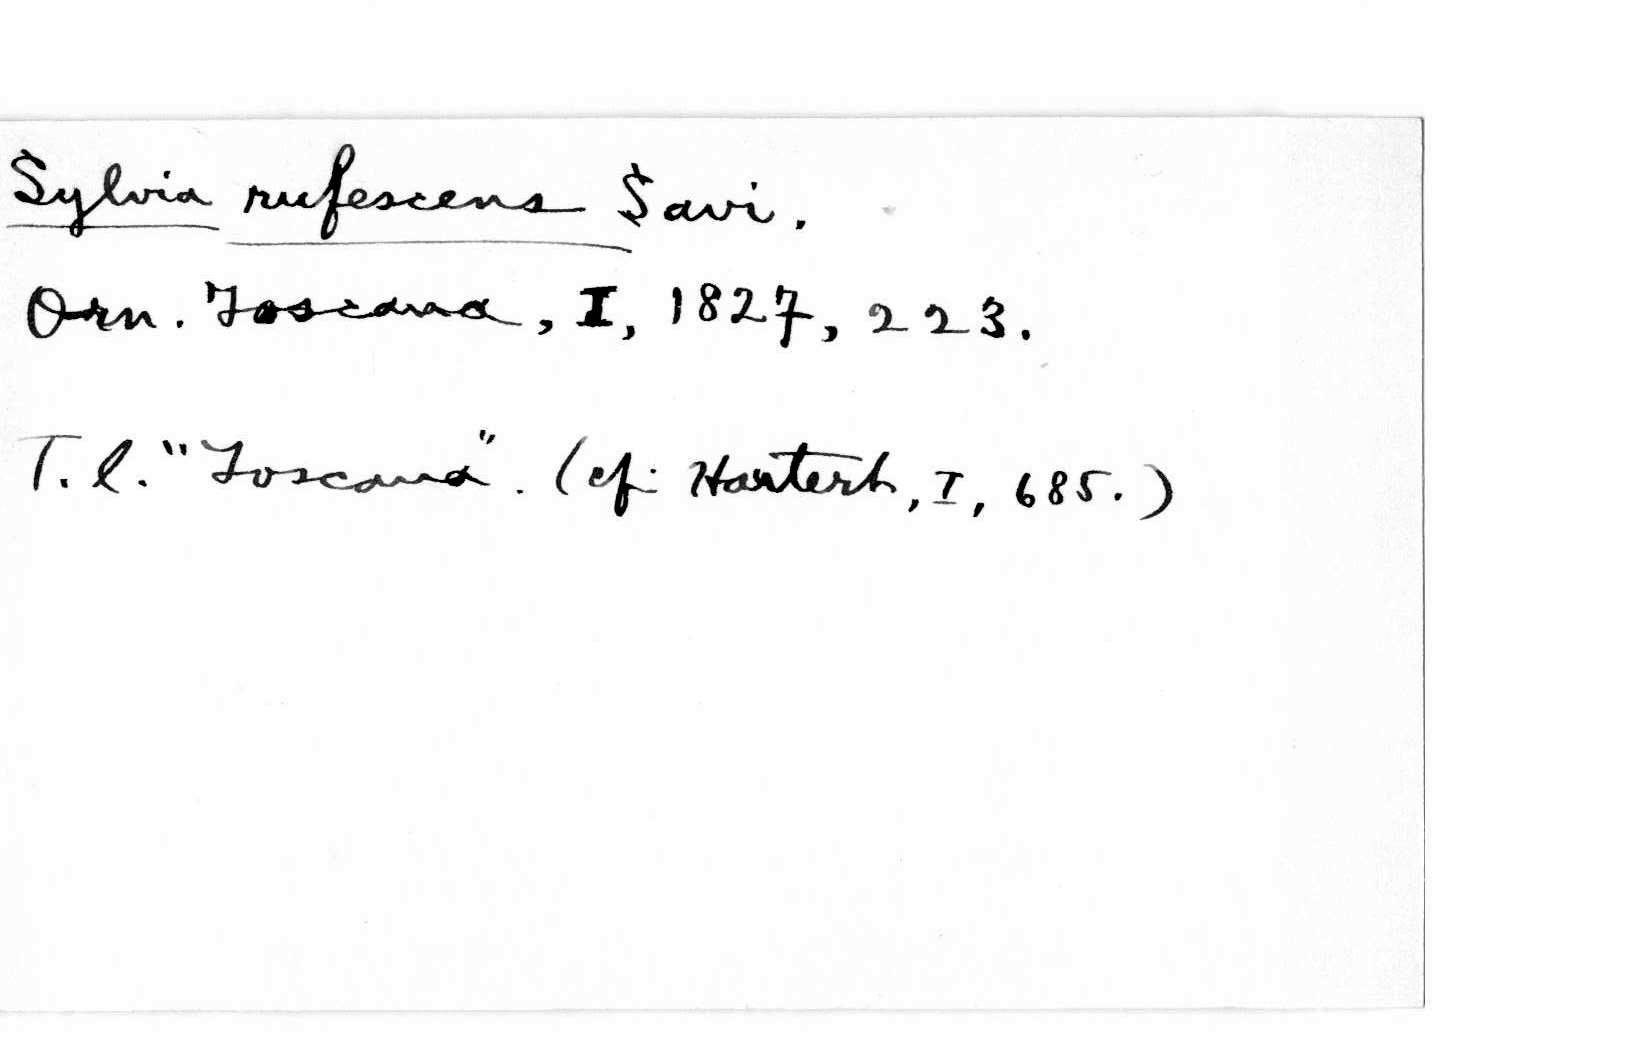 Sylvia rufescens Savi.
Orn. Toscana, I, 1827, 223.
T. l. "Toscana". (cf. Hartert, I, 685.)